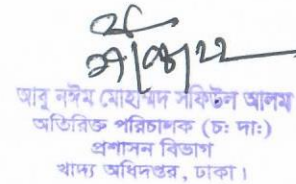 আবু নঈম মোহাম্মদ সফিউল আলম
অতিরিক্ত পরিচালক (চঃ দাঃ)
প্রশাসন বিভাগ
খাদ্য অধিদপ্তর, ঢাকা।